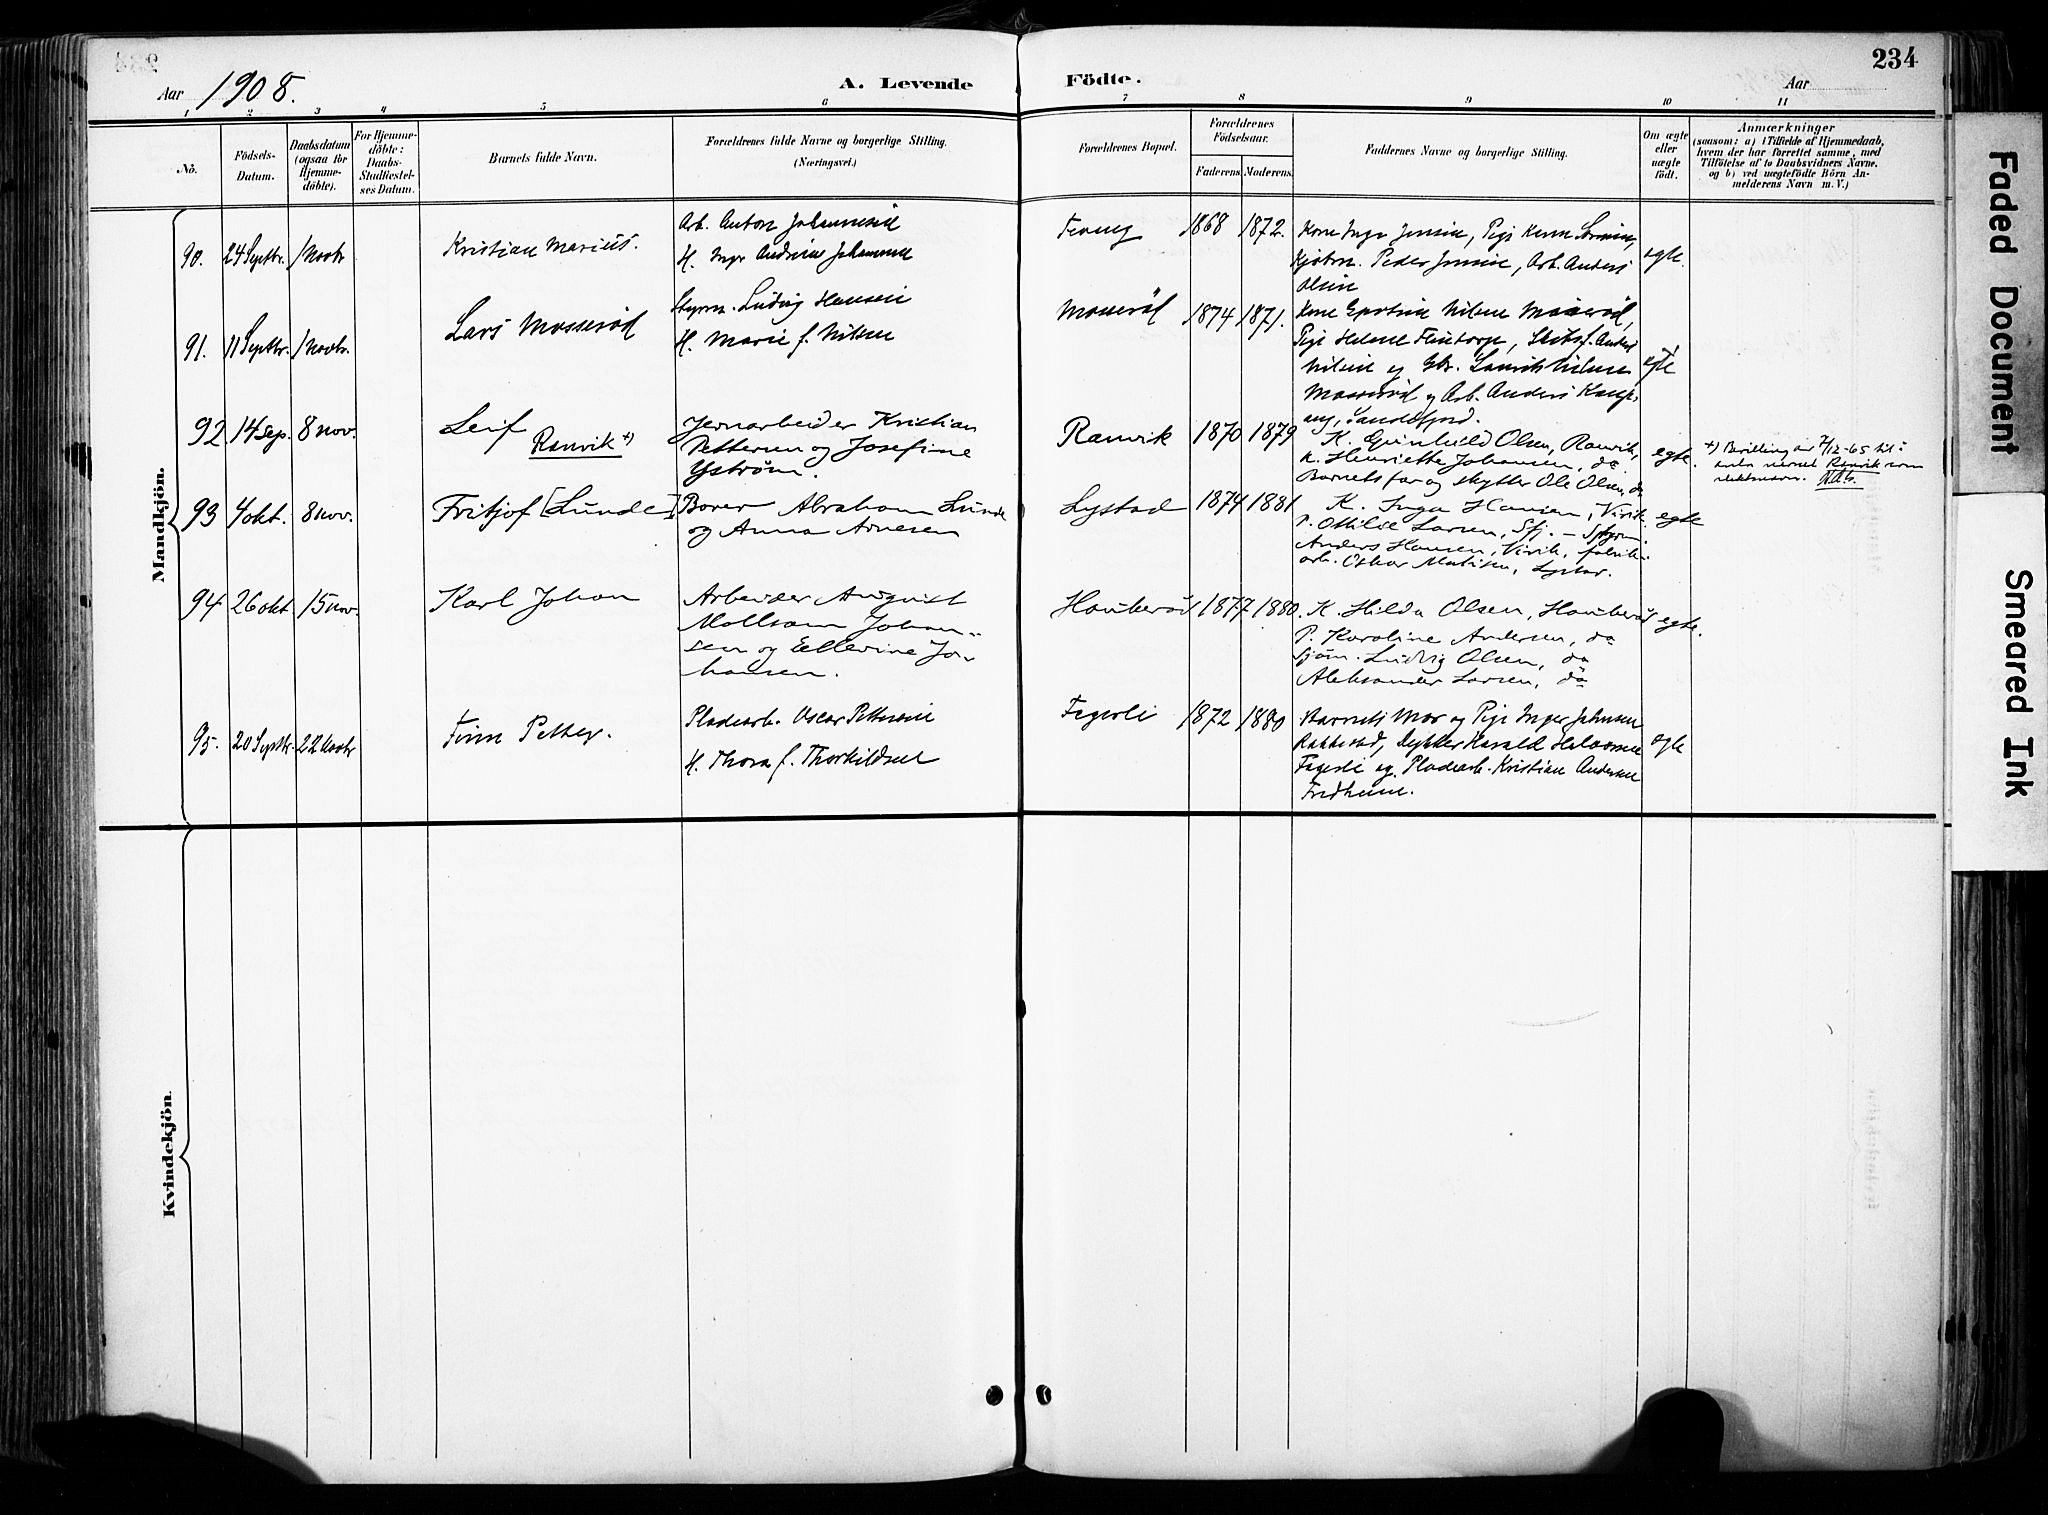 234
Aar 1908.
A. Levende
Födte.
Aar
1 2 3 4 5 6 7 8 9 10 11
No.
Födsels-Datum.
Daabsdatum (ogsaa for Hjemmedöbte).
For Hjemmedöbte: Daabs-Stadfæstelses Datum.
Barnets fulde Navn.
Forældrenes fulde Navne og borgerlige Stilling. (Næringsvei.)
Forældrenes Bopæl.
Forældrenes Födselsaar.
Faderens. Moderens.
Faddernes Navne og borgerlige Stilling.
Om ægte eller uægte födt.
Anmærkninger
(saasom: a) i Tilfælde af Hjemmedaab, hvem der har forrettet samme, med Tilföielse af to Daabsvidners Navne, og b) ved uægtefödte Börn Anmelderens Navn m. V.)
Mandkjön.
90. 24 Septbr. 1 Novbr Kristian Marius.
Arb. Anton Johannesen
H. Inga Andrine Johannesen
1868 1872.
Kone Inga Jensen,
Peder Jensen, Arb. Anders
Olsen
egte.
91. 11 Septbr. 1 Novbr. Lars Mosserød
Styrm. Ludvig Hansen
H. Marie f. Nilsen
Mosserød 1874 1871.
Nilsen Mosserød,
Pige Helene
Nilsen og
Mosserød og Arb. Anders
Sandefjord.
egte
92 14 sep. 8 nov. Leif
Ranvik +)
Jernarbeider Kristian
Pettersen og Josefine
Ystrøm.
Ranvik 1870 1879
K. Gunhild Olsen, Ranvik,
K. Henriette Johansen, do
Barnets far og skytter Ole Olsen, do
egte.
+) Bevilling av 7/12-65 til å
anta navnet Ranvik som
slektsnavn.
93 4 okt. 8 nov. Fritjof [Lunde]
Borer Abraham Lunde
og Anna Arnesen
Lystad 1874 1881
K. Inga Hansen, Virik
P. Otilde Larsen, Sfj. – Styrm.
Anders Hansen, Virik, fabrik-
arb. Oskar Matisen, Lystad.
egte
94 26 okt 15 nov. Karl Johan
Arbeider August
Johan-
sen og Ellevine Jo-
hansen.
Hauberød 1877 1880.
K. Hilda Olsen, Hauberød
P. Karoline Andersen, do
Sjøm. Ludvig Olsen, do
Aleksander Larsen, do
egte.
95. 20 Septbr. 22 Novbr Finn Petter.
Pladearb. Oscar Pettersen
H. Thora f. Thorkildsen
Fagerli 1872 1880
Barnets Mor og Pige Inger Johnsen
Rakkestad, Dykker Harald Halvorsen
Fagerli og Pladearb. Kristian Andersen
Fredheim.
egte
Kvindekjön.
Faded Document
Smeared Ink